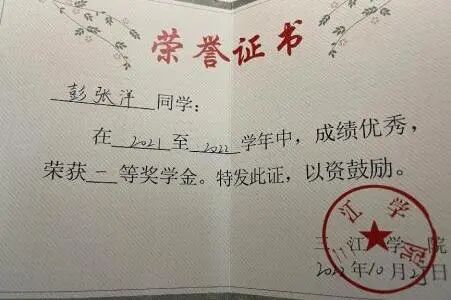 荣誉证书
彭张洋 同学：
在 2021 至 2022 学年中，成绩优秀，
荣获 二 等奖学金。特发此证，以资鼓励。
三江学院
三江学院
2022年10月25日